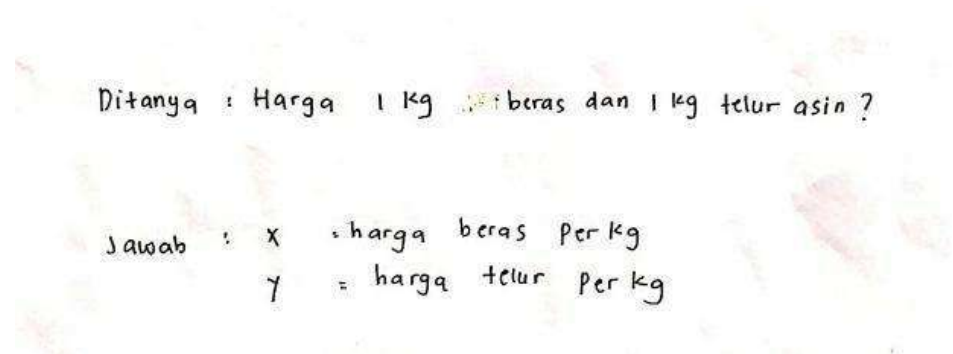 Ditanya : Harga 1 kg beras dan 1 kg telur asin ?
Jawab : x = harga beras per kg
y = harga telur per kg